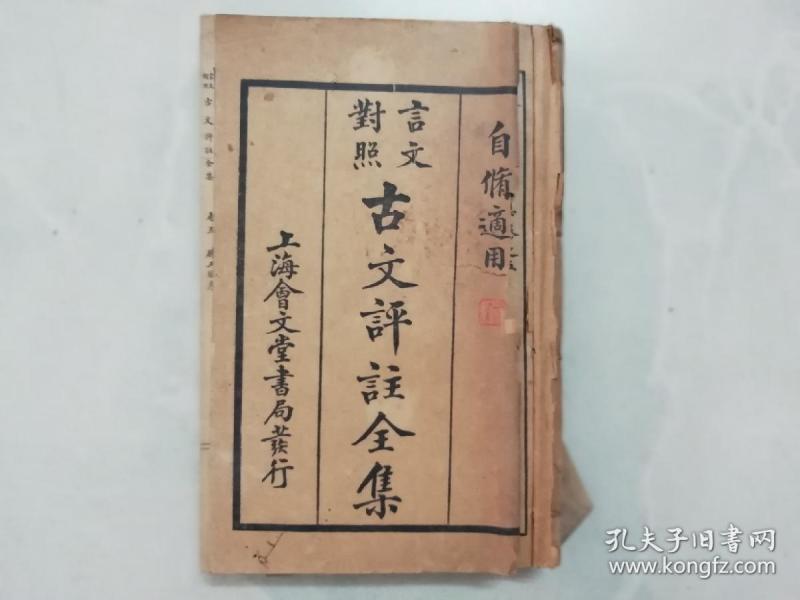 自脩適用
言文
對照
古文評註全集
上海會文堂書局發行
古文評註全集 卷五
孔夫子旧书网
www.kongfz.com